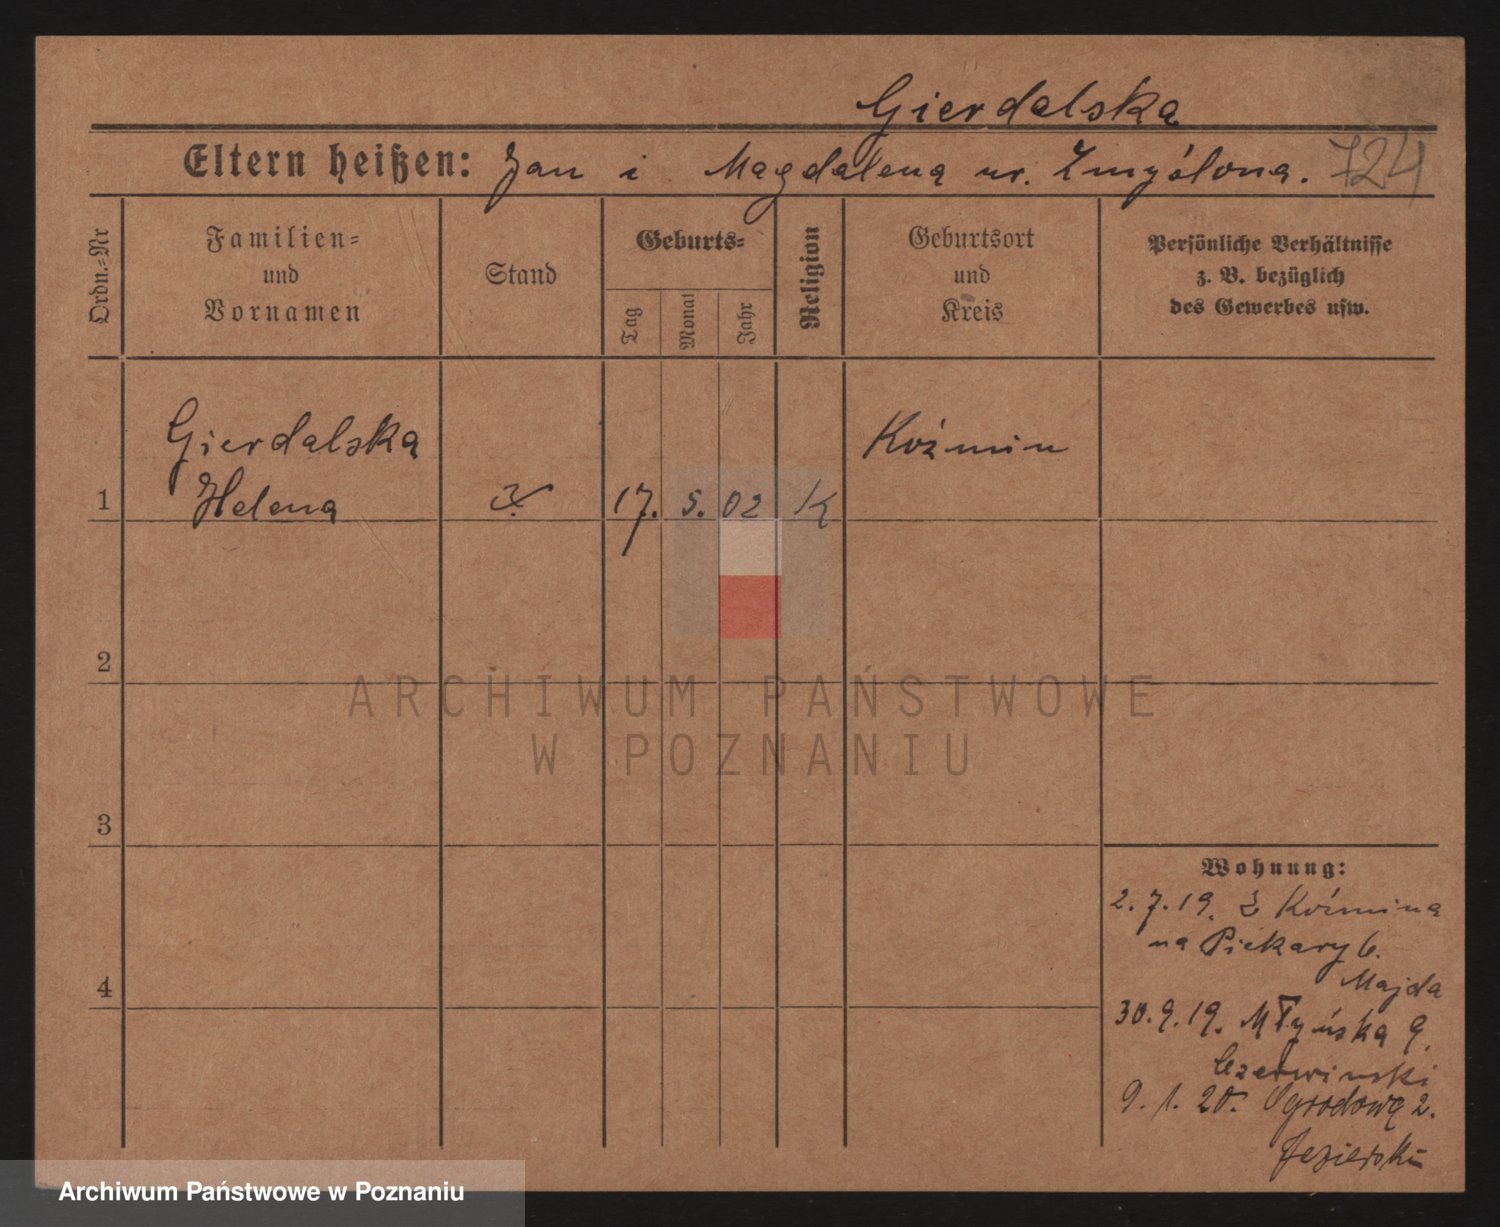 Gierdalska
Eltern heißen: Jan i Magdalena ur. Zmyślona. 724
Ordn.=Nr
Familien=
und
Vornamen
Stand
Geburts=
Tag
Monat
Jahr
Religion
Geburtsort
und
Kreis
Persönliche Verhältnisse
z. B. bezüglich
des Gewerbes usw.
Gierdalska
Koźmin
1 Helena 17. 5. 02 K
2
ARCHIWUM PAŃSTWOWE
W POZNANIU
3
Wohnung:
2.7.19. Z Koźmina
na Piekary 6.
Majda
4
30.9.19. Młyńska 9.
Czerwiński
9.1.20. Ogrodowa 2.
Archiwum Państwowe w Poznaniu